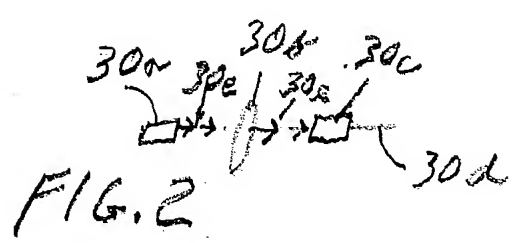 30b
30a 30e 30e 30c
30d
FIG. 2